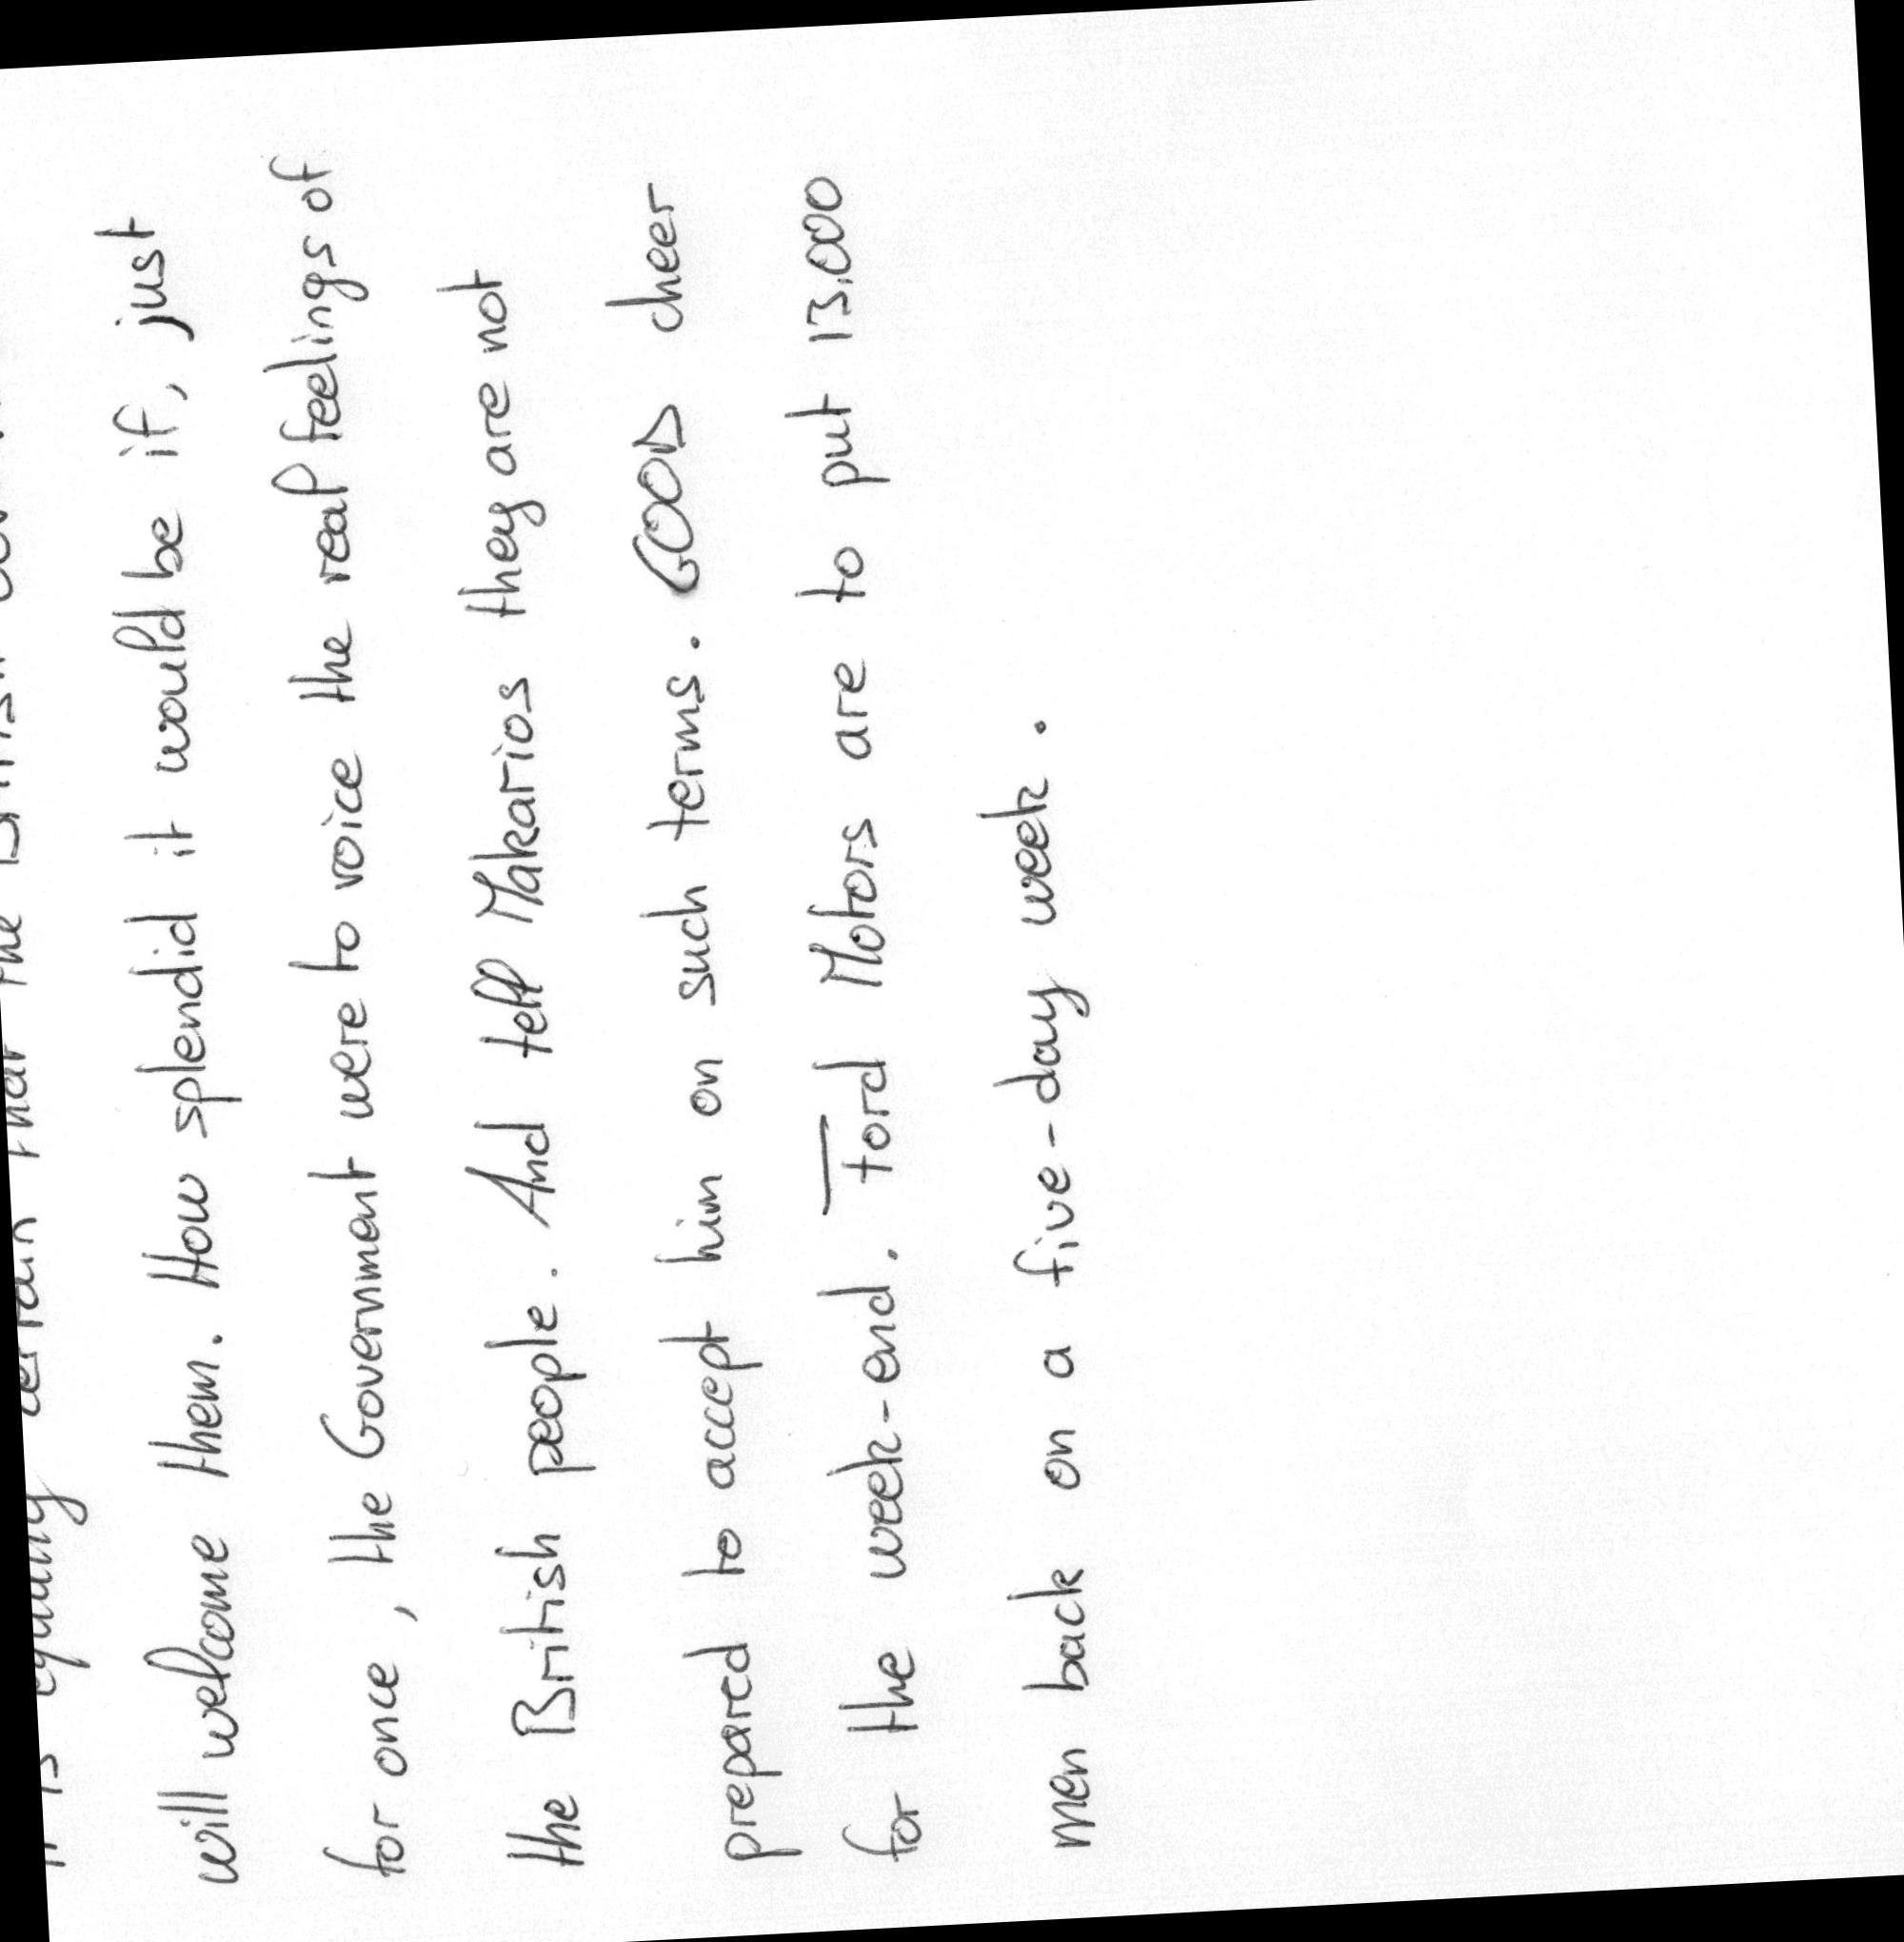 It is equally certain that the British
will welcome them. How splendid it would be if, just
for once, the Government were to voice the real feelings of
the British people. And tell Makarios they are not
prepared to accept him on such terms. GOOD cheer
for the week-end. Ford Motors are to put 13,000
men back on a five-day week.